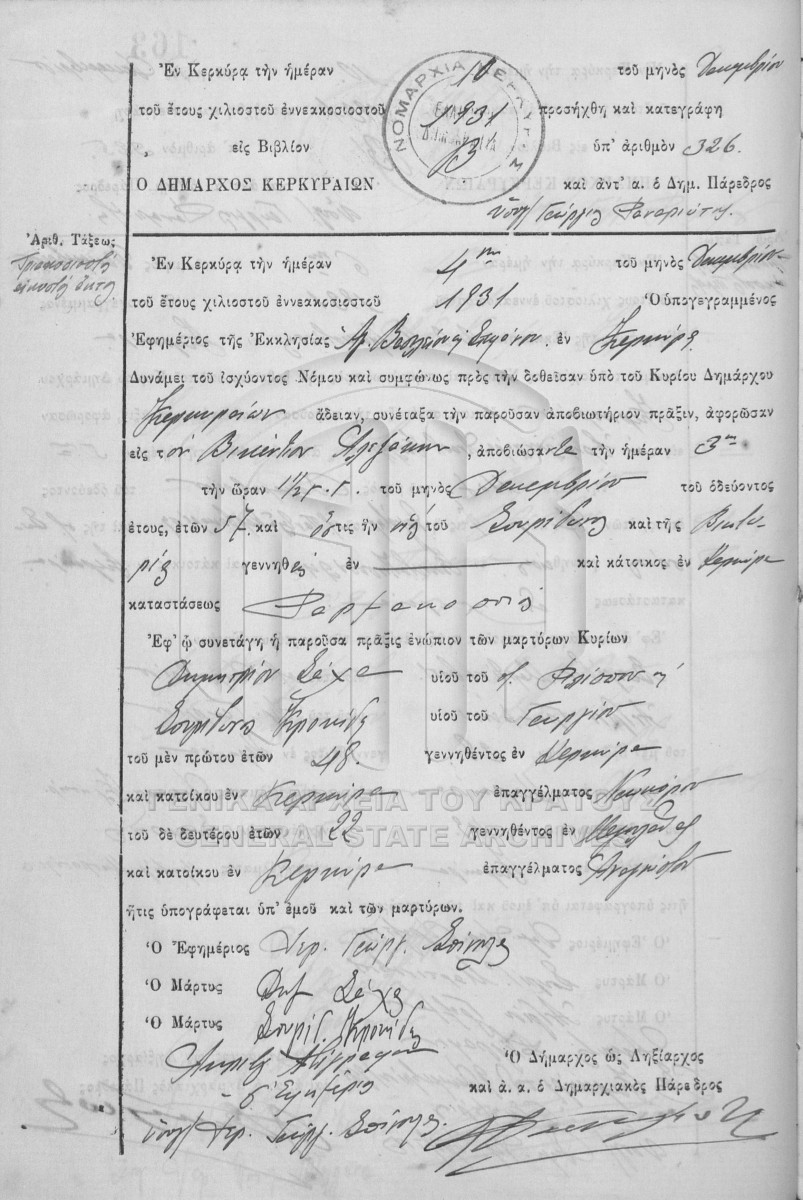 Ἐν Κερκύρᾳ τὴν ἡμέραν 10 τοῦ μηνὸς Δεκεμβρίου
τοῦ ἔτους χιλιοστοῦ ἐννεακοσιοστοῦ 1931 προσήχθη καὶ κατεγράφη
εἰς Βιβλίον ὑπ' ἀριθμὸν 326.
Ο ΔΗΜΑΡΧΟΣ ΚΕΡΚΥΡΑΙΩΝ καὶ ἀντ' α. ὁ Δημ. Πάρεδρος
ΝΟΜΑΡΧΙΑ ΚΕΡΚΥΡΑΣ
Γεώργιος Φαναριώτης
Ἀριθ. Τάξεως
Τριακοσιοστὴ
εἰκοστὴ ἕκτη
Ἐν Κερκύρᾳ τὴν ἡμέραν 4ην τοῦ μηνὸς Δεκεμβρίου
τοῦ ἔτους χιλιοστοῦ ἐννεακοσιοστοῦ 1931 Ὁ ὑπογεγραμμένος
Ἐφημέριος τῆς Ἐκκλησίας Ἁγ. Βασιλείου & Στεφάνου ἐν Κερκύρᾳ
Δυνάμει τοῦ ἰσχύοντος Νόμου καὶ συμφώνως πρὸς τὴν δοθεῖσαν ὑπὸ τοῦ Κυρίου Δημάρχου
Κερκυραίων ἄδειαν, συνέταξα τὴν παροῦσαν ἀποβιωτήριον πρᾶξιν, ἀφορῶσαν
εἰς τὸν Βικέντιον Ἀλεξάκην, ἀποβιώσαντα τὴν ἡμέραν 3ην
τὴν ὥραν τοῦ μηνὸς Δεκεμβρίου τοῦ ὁδεύοντος
ἔτους, ἐτῶν 57 καὶ ὅστις ἦν υἱὸς τοῦ Σπυρίδωνος καὶ τῆς Βικτω
ρίας γεννηθεὶς ἐν καὶ κάτοικος ἐν Κερκύρᾳ
καταστάσεως Φαρμακοποιὸς
Ἐφ' ᾧ συνετάγη ἡ παροῦσα πρᾶξις ἐνώπιον τῶν μαρτύρων Κυρίων
Δημητρίου Σάχα υἱοῦ τοῦ π. Φιλίππου &
Σπυρίδωνος Κρονίδη υἱοῦ τοῦ Γεωργίου
τοῦ μὲν πρώτου ἐτῶν 48. γεννηθέντος ἐν Κερκύρᾳ
καὶ κατοίκου ἐν Κερκύρᾳ ἐπαγγέλματος Νεωκόρου
ΓΕΝΙΚΑ ΑΡΧΕΙΑ ΤΟΥ ΚΡΑΤΟΥΣ
τοῦ δὲ δευτέρου ἐτῶν 22 γεννηθέντος ἐν
GENERAL STATE ARCHIVES
καὶ κατοίκου ἐν Κερκύρᾳ ἐπαγγέλματος Ἀναγνώστου
ἥτις ὑπογράφεται ὑπ' ἐμοῦ καὶ τῶν μαρτύρων.
Ὁ Ἐφημέριος Ἱερ. Γεώργ. Σπίνουλας
Ὁ Μάρτυς Δημ Σάχας
Ὁ Μάρτυς Σπυρίδ. Κρονίδης
Ἀκριβὲς Ἀντίγραφον
Ὁ Δήμαρχος ὡς Ληξίαρχος
ὁ Ἐφημέριος
καὶ ἀ. α. ὁ Δημαρχιακὸς Πάρεδρος
Ἱερ. Γεώργ. Σπίνουλας